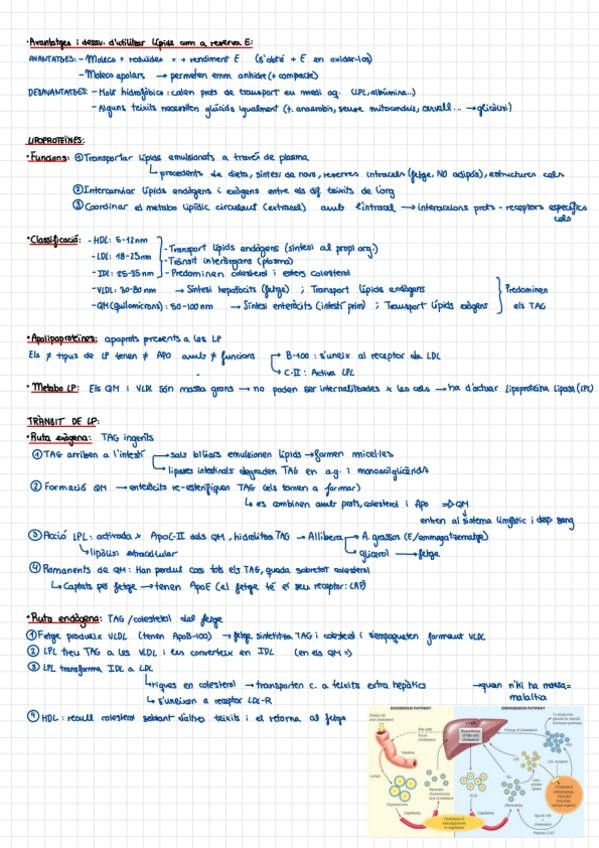 ·Avantatges i desav. d'utilitzar lípids com a reserva E:
AVANTATGES: - Molecs + reduïdes = + rendiment E (s'obté + E en oxidar-los)
- Molecs apolars → permeten emm anhidre (+ compacte)
DESAVANTATGES: - Molt hidrofòbics: calen prots de transport en medi aq. (LPL, albúmina...)
- Alguns teixits necessiten glúcids igualment (t. anaerobis, sense mitocondris, cervell... → glicòlisi)
LIPOPROTEÏNES:
·Funcions: ① Transportar lípids emulsionats a través de plasma
↳ procedents de dieta, síntesi de novo, reserves intracels (fetge, NO adipós), estructures cels
② Intercanviar lípids endògens i exògens entre els dif teixits de l'org
③ Coordinar el metabo lipídic circulant (extracel) amb l'intracel → interaccions prots - receptors específics cels
·Classificació: - HDL: 5-12nm
- LDL: 18-25nm
- IDL: 25-35nm
- Transport lípids endògens (síntesi al propi org.)
- Trànsit interòrgans (plasma)
- Predominen colesterol i esters colesterol
- VLDL: 30-80nm → Síntesi hepatòcits (fetge) ; Transport lípids endògens
- QM (quilomicrons): 50-100nm → Síntesi enteròcits (intestí prim) ; Transport lípids exògens
Predominen els TAG
·Apolipoproteïnes: apoprots presents a les LP
Els ≠ tipus de LP tenen ≠ APO amb ≠ funcions
B-100: s'uneix al receptor de LDL
C-II: Activa LPL
·Metabo LP: Els QM i VLDL són massa grans → no poden ser internalitzades x les cels → ha d'actuar lipoproteïna lipasa (LPL)
TRÀNSIT DE LP:
·Ruta exògena: TAG ingerits
① TAG arriben a l'intestí
→ sals biliars emulsionen lípids → formen micel·les
→ lipases intestinals degraden TAG en a.g. i monoacilglicèrids
② Formació QM → enteròcits re-esterifiquen TAG (els tornen a formar)
↳ es combinen amb prots, colesterol i Apo ⇒ QM
entren al sistema limfàtic i desp sang
③ Acció LPL: activada x ApoC-II dels QM, hidrolitza TAG → Allibera
A. grassos (E/emmagatzematge)
glicerol → fetge
↳ lipòlisi extracel·lular
④ Romanents de QM: Han perdut casi tots els TAG, queda sobretot colesterol
↳ Captats pel fetge → tenen ApoE (el fetge té el seu receptor: LRP)
·Ruta endògena: TAG/colesterol del fetge
① Fetge produeix VLDL (tenen ApoB-100) → fetge sintetitza TAG i colesterol i s'empaqueten formant VLDL
② LPL treu TAG a les VLDL i les converteix en IDL (en els QM =)
③ LPL transforma IDL a LDL
↳ riques en colesterol → transporten c. a teixits extra hepàtics → quan n'hi ha massa = malaltia
↳ s'uneixen a receptor LDL-R
④ HDL: recull colesterol sobrant d'altres teixits i el retorna al fetge
EXOGENOUS PATHWAY
ENDOGENOUS PATHWAY